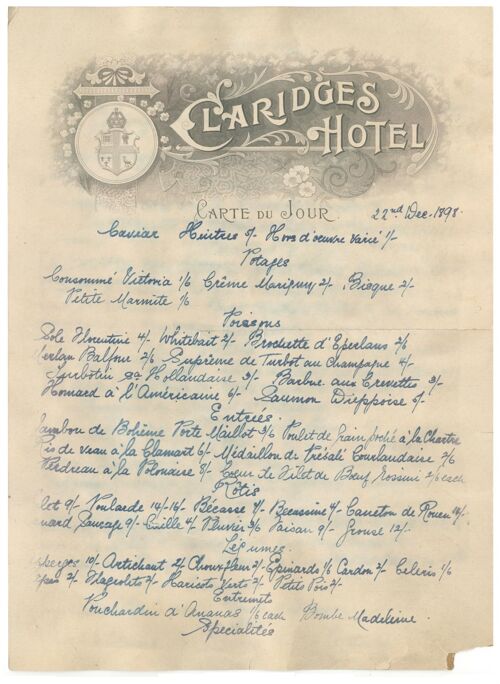 CLARIDGES
HOTEL
CARTE DU JOUR. 22nd Dec. 1898.
Caviar Huitres 5/- Hors d'oeuvre varié 1/-
Potages
Consommé Victoria 1/6 Crême Marigny 2/- Bisque 2/-
Petite Marmite 1/6
Poissons
Sole Florentine 4/- Whitebait 2/- Brochette d'Eperlans 2/6
Merlan Balfour 2/6 Suprême de Turbot au Champagne 4/-
Turbotin Hollandaise 3/- Barbue aux Crevettes 3/-
Homard à l'Américaine 6/- Saumon Dieppoise 5/-
Entrées.
Jambon de Bohême Porte Maillot 3/6 Poulet de grain poché à la Chartre
Ris de veau à la Clamart 6/- Médaillon de Courlandaise 2/6
Perdreau à la Polonaise 8/- Coeur de Filet de Boeuf Rossini 2/6 each
Rôtis
Poularde 14/-16/- Bécasse 7/- Bécassine 4/- Caneton de Rouen
Canard Sauvage 9/- Caille 4/- Pluvier 3/6 Faisan 9/- Grouse 12/-
Légumes.
Asperges 10/- Artichaut 2/- Chouxfleur 2/- Epinards 1/6 Cardon 2/- Céleris 1/6
2/- Flageolets 2/- Haricots Verts 2/- Petits Pois 2/-
Entremets
Pouchardin d'Ananas 1/6 each Bombe Madeleine.
Spécialités